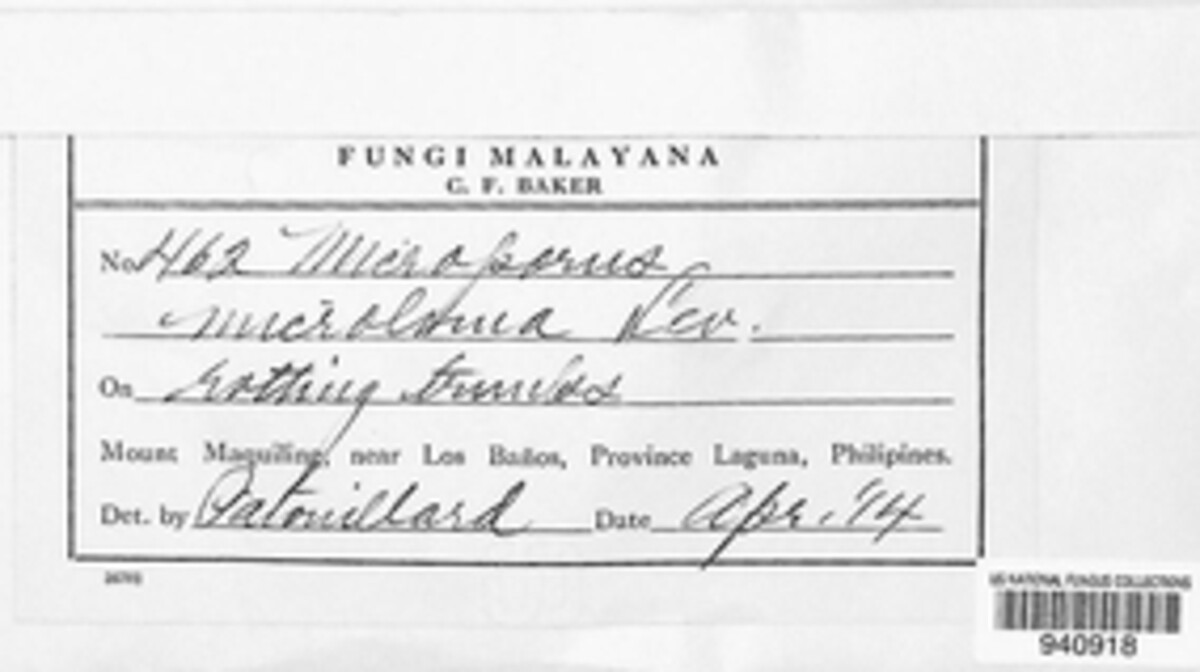 FUNGI MALAYANA
C. F. BAKER
No. 462 Microporus
microloma Lev.
On rotting trunks
Mount Maquiling, near Los Baños, Province Laguna, Philipines.
Det. by Patouillard Date Apr. '14
US NATIONAL FUNGUS COLLECTIONS
940918